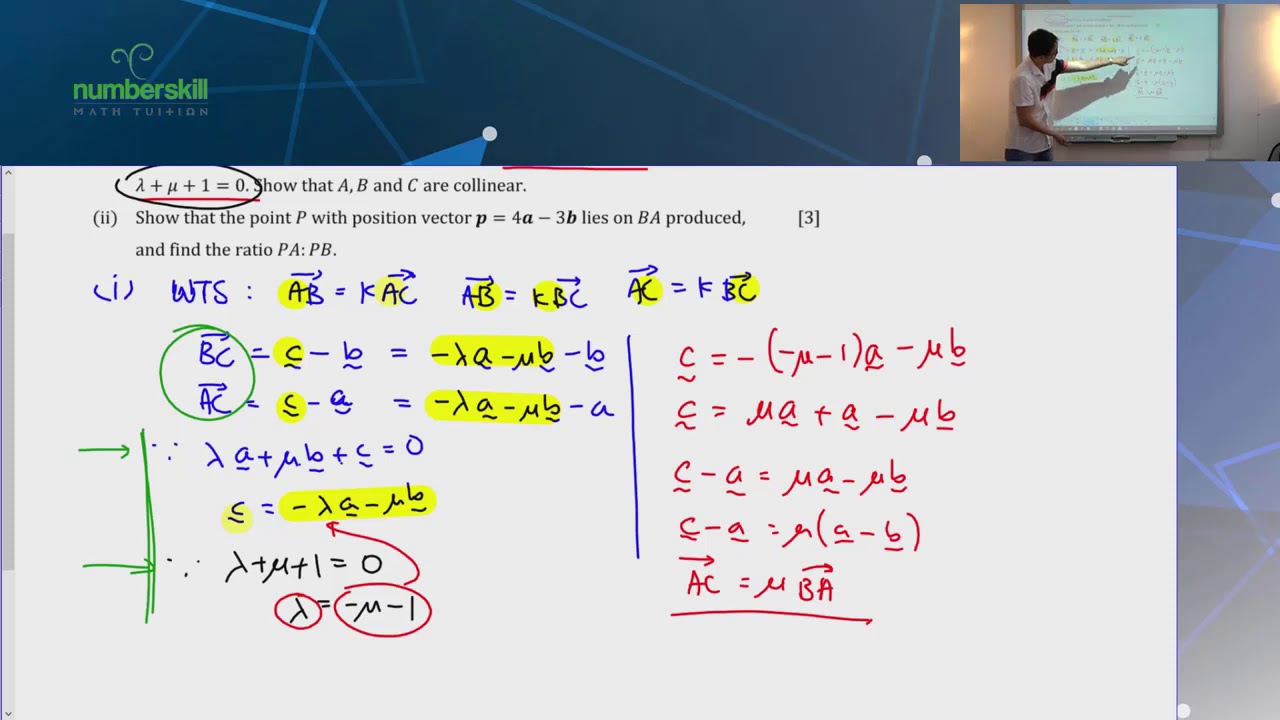 numberskill
MATH TUITION
λ + μ + 1 = 0. Show that A, B and C are collinear.
(ii) Show that the point P with position vector p = 4a − 3b lies on BA produced, [3]
and find the ratio PA: PB.
(i) WTS : AB = K AC AB = K BC AC = K BC
BC = c - b = -λa - μb - b
AC = c - a = -λa - μb - a
∵ λa + μb + c = 0
c = -λa - μb
∵ λ + μ + 1 = 0
λ = -μ - 1
c = -(-μ-1)a - μb
c = μa + a - μb
c - a = μa - μb
c - a = μ(a - b)
AC = μ BA